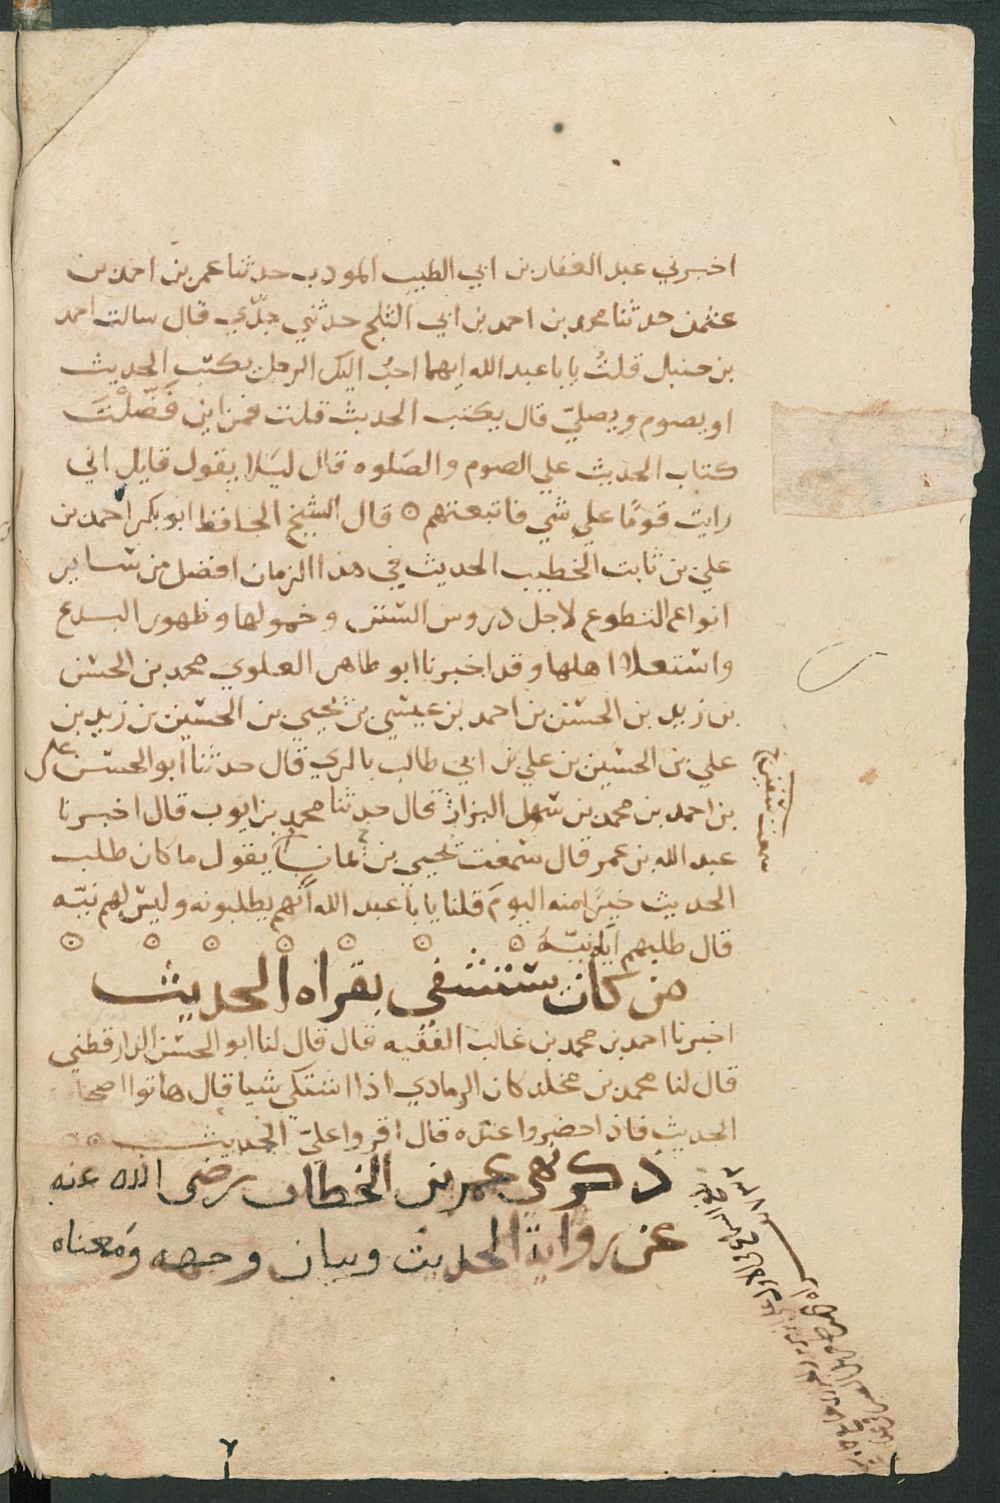 اخبرني عبد الغفار بن ابي الطيب المودب حدثنا عمر بن احمد بن
عثمن حدثنا محمد بن احمد بن ابي الثلج حدثني جدّي قال سالت احمد
بن حنبل قلتُ يابا عبد الله ايهما احبُّ اليك الرجل يكتب الحديث
او يصوم ويصليّ قال يكتب الحديث قلت فمن اين فَضَّلْتَ
كتاب الحديث علي الصوم والصَلوه قال ليَلا يقول قايل اني
رايت قومًا علي شي فاتبعتهم ⊙ قال الشيخ الحافظ ابو بكر احمد بن
علي بن ثابت الخطيب الحديث في هذا الزمان افضل من ساير
انواع التطوع لاجل دروس السنن وخمولها وظهور البدع
واستعلا اهلها وقد اخبرنا ابو طاهر العلوي محمد بن الحسن
بن زيد بن الحسن بن احمد بن عيسي بن يحيي بن الحسين بن زيد بن
علي بن الحسين بن علي بن ابي طالب بالري قال حدثنا ابو الحسن علي
بن احمد بن محمد بن سهل البزاز قال حدثنا محمد بن ايوب قال اخبرنا
عبد الله بن عمر قال سمعت يحيي بن يمان يقول ما كان طلب
الحديث خيرًا منه اليومَ قلنا يابا عبد الله انَّهم يطلبونه وليس لهم نيّه
قال طلبهم ايّاه نيّه ⊙ ⊙ ⊙ ⊙ ⊙ ⊙ ⊙
من كان يستشفي بقراه الحديث
اخبرنا احمد بن محمد بن غالب الفقيه قال قال لنا ابو الحسن الدارقطني
قال لنا محمد بن مخلد كان الرمادي اذا اشتكي شيا قال هاتوا اصحاب
الحديث فاذا حضروا عنده قال اقروا عليّ الحديث ⊙
ذكر نهي عمر بن الخطاب رضي الله عنه
عن رواية الحديث وبيان وجهه ومعناه